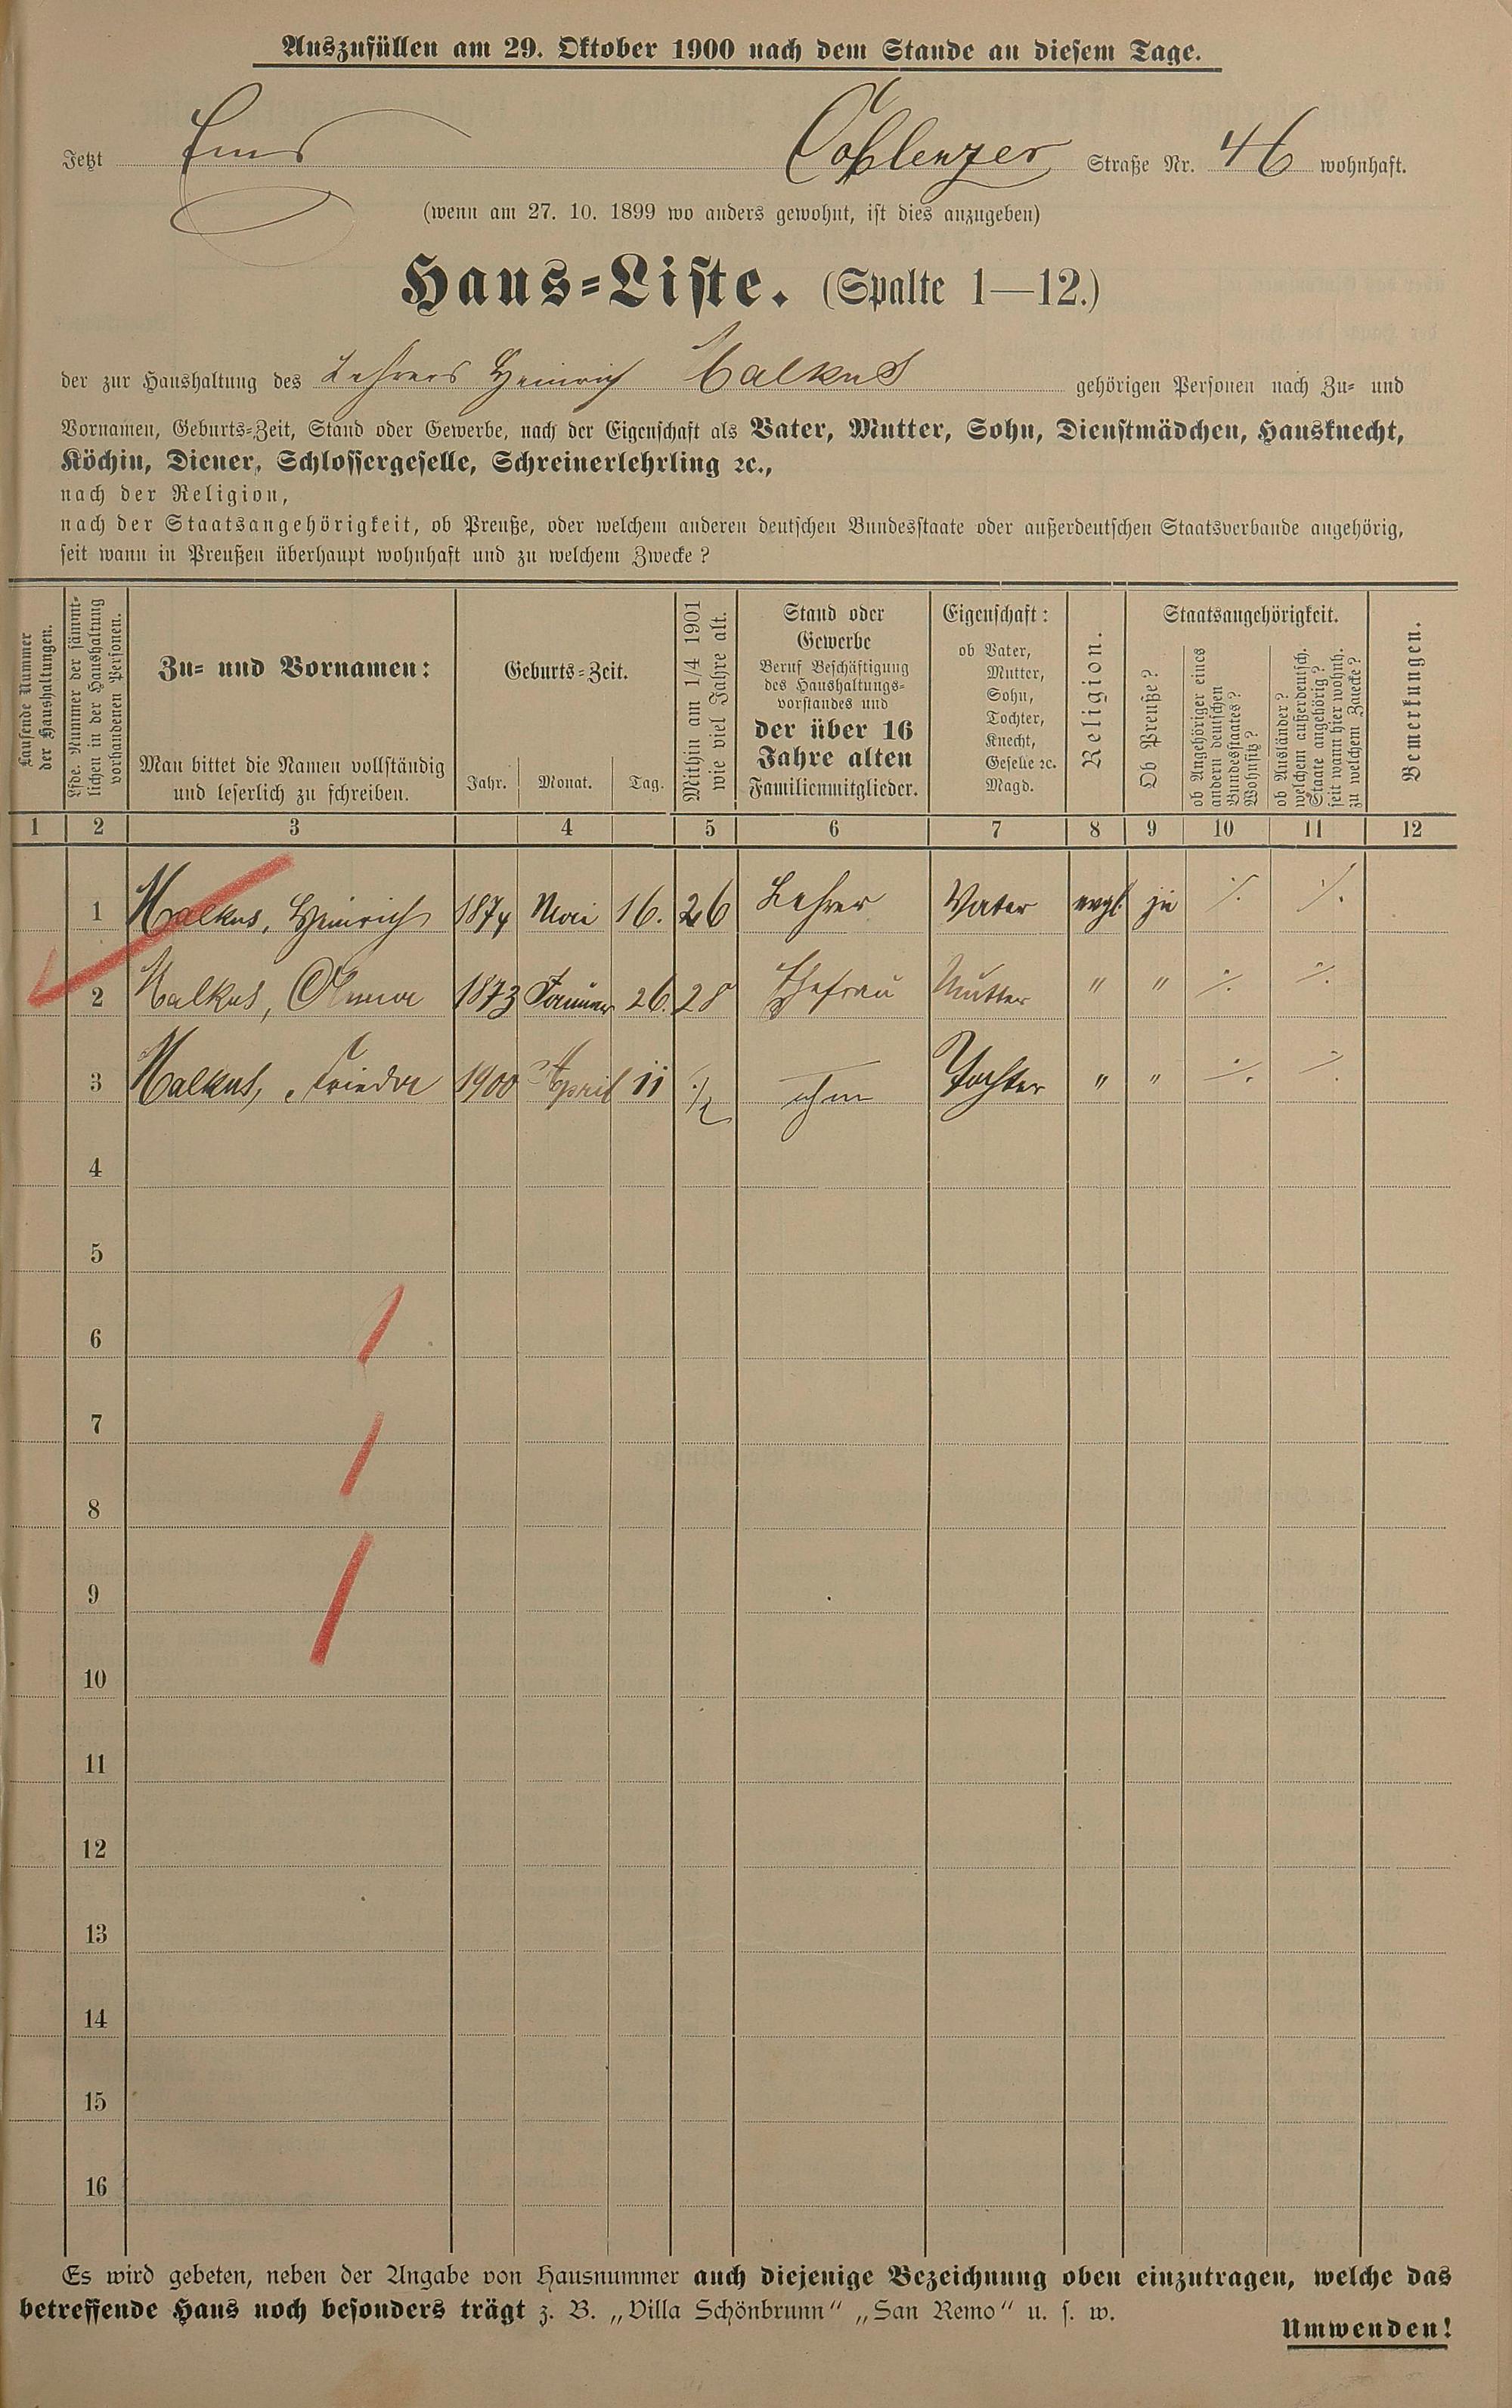 Auszufüllen am 29. Oktober 1900 nach dem Stande an diesem Tage.
Jetzt Ems Coblenzer Straße Nr. 46 wohnhaft.
(wenn am 27. 10. 1899 wo anders gewohnt, ist dies anzugeben)
Haus=Liste. (Spalte 1—12.)
der zur Haushaltung des Lehrers Heinrich Malkus gehörigen Personen nach Zu= und
Vornamen, Geburts=Zeit, Stand oder Gewerbe, nach der Eigenschaft als Vater, Mutter, Sohn, Dienstmädchen, Hausknecht,
Köchin, Diener, Schlossergeselle, Schreinerlehrling ꝛc.,
nach der Religion,
nach der Staatsangehörigkeit, ob Preuße, oder welchem anderen deutschen Bundesstaate oder außerdeutschen Staatsverbande angehörig,
seit wann in Preußen überhaupt wohnhaft und zu welchem Zwecke?
Laufende Nummer
der Haushaltungen.
Lfde. Nummer der sämmt=
lichen in der Haushaltung
vorhandenen Personen.
Zu= und Vornamen:
Man bittet die Namen vollständig
und leserlich zu schreiben.
Geburts=Zeit.
Jahr. Monat. Tag.
Mithin am 1/4 1901
wie viel Jahre alt.
Stand oder
Gewerbe
Beruf Beschäftigung
des Haushaltungs=
vorstandes und
der über 16
Jahre alten
Familienmitglieder.
Eigenschaft:
ob Vater,
Mutter,
Sohn,
Tochter,
Knecht,
Geselle ꝛc.
Magd.
Religion.
Staatsangehörigkeit.
Ob Preuße?
ob Angehöriger eines
andern deutschen
Bundesstaates?
Wohnsitz?
ob Ausländer?
welchem außerdeutsch.
Staate angehörig?
seit wann hier wohnh.
zu welchem Zwecke?
Bemerkungen.
1 2 3 4 5 6 7 8 9 10 11 12
1 Malkus, Heinrich 1874 Mai 16. 26 Lehrer Vater evgl. ja ./. ./.
2 Malkus, Anna 1873 Januar 26. 28 Ehefrau Mutter " " ./. ./.
3 Malkus, Frieda 1900 April 11 1/2 ohne Tochter " " ./. ./.
4
5
6
7
8
9
10
11
12
13
14
15
16
Es wird gebeten, neben der Angabe von Hausnummer auch diejenige Bezeichnung oben einzutragen, welche das
betreffende Haus noch besonders trägt z. B. „Villa Schönbrunn“ „San Remo“ u. s. w.
Umwenden!